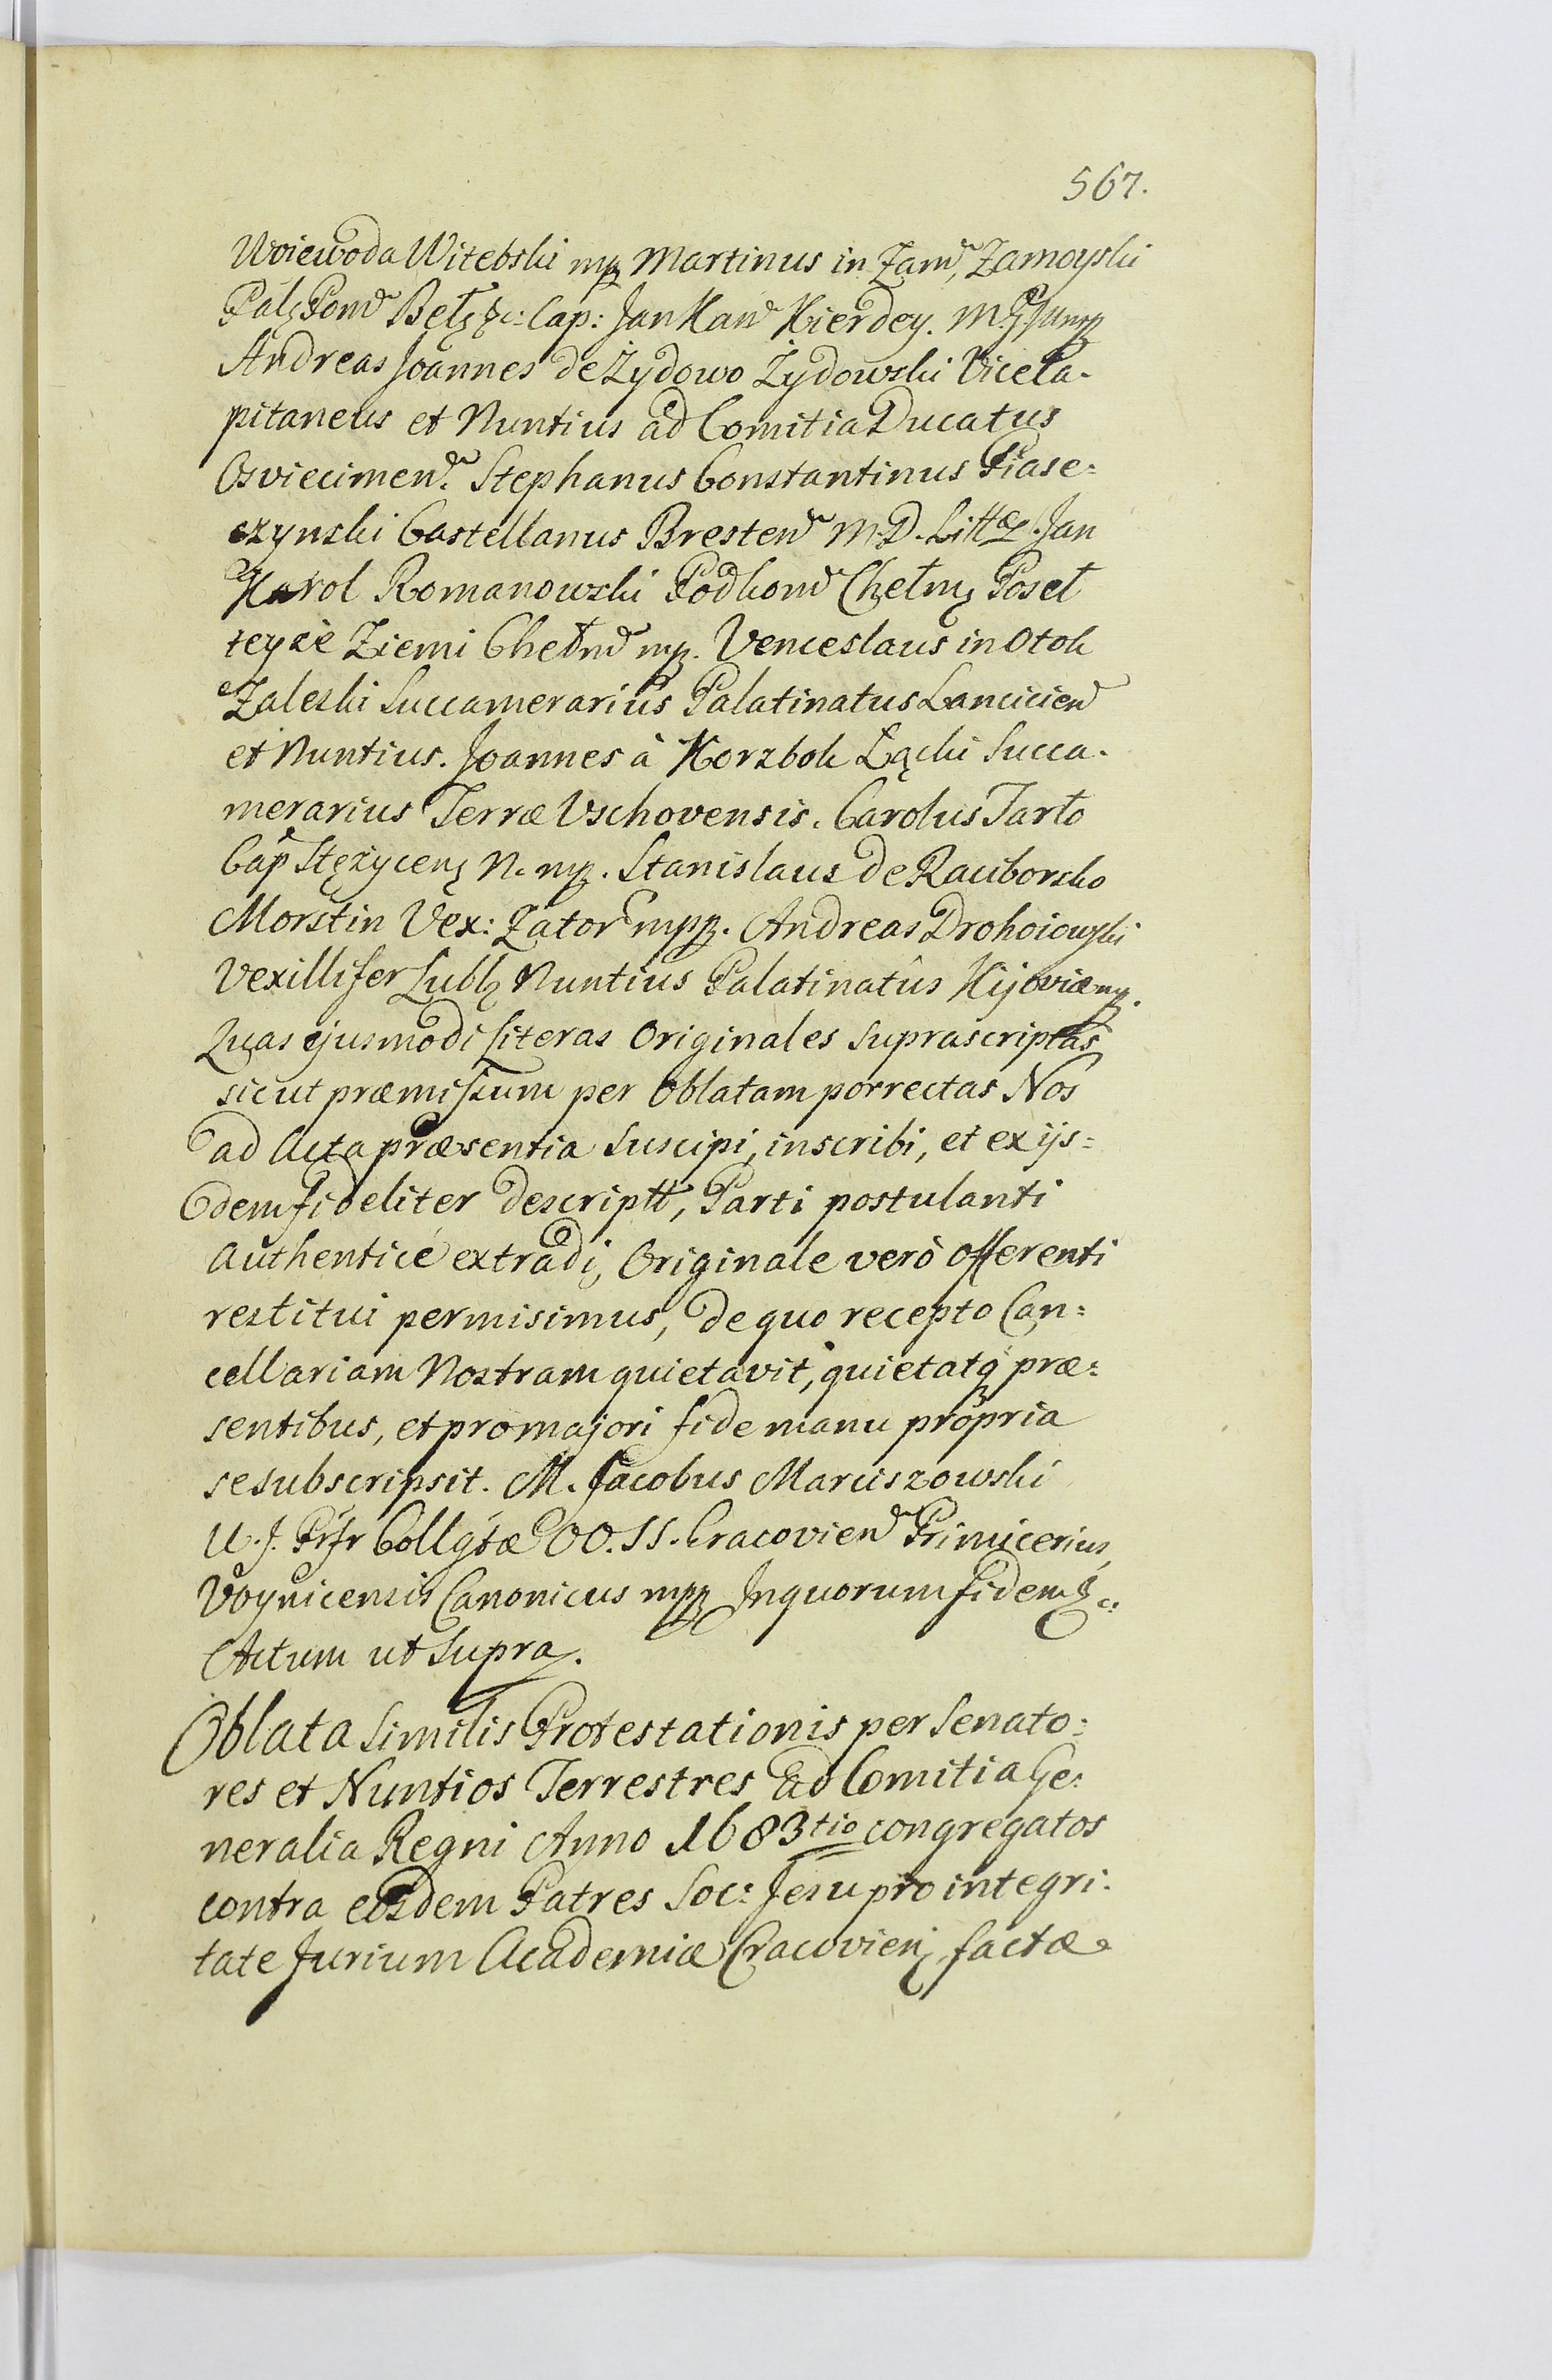 567.
Woiewoda Witebski mp Martinus in Zam, Zamoyski
Palz Pom Bełz &c: Cap: Jan Kan Kierdey.
Andreas Joannes de Żydowo Żydowski ViceCa-
pitaneus et Nuntius ad Comitia Ducatus
Osviecimen. Stephanus Constantinus Piase=
czynski Castellanus Bresten M.D. Litt. Jan
Karol Romanowski Podkom Chełm Poseł
teyże Ziemi Chełm mp. Venceslaus in Otok
Zaleski Succamerarius Palatinatus Lancicien
et Nuntius. Joannes à Korzbok Łącki Succa-
merarius Terræ Vschovensis. Carolus Tarło
Cap Stężycen N. mp. Stanislaus de Raciborsko
Morstin Vex: Zator mpp. Andreas Drohoiowski
Vexillifer Lubl Nuntius Palatinatûs Kijoviæ mp.
Quas ejusmodi Literas Originales suprascriptas
sicut præmissum per Oblatam porrectas Nos
ad Acta præsentia suscipi, inscribi, et ex ijs=
dem fideliter descriptt, Parti postulanti
Authenticè extradi, Originale verò offerenti
restitui permisimus, de quo recepto Can=
cellariam Nostram quietavit, quietatq præ=
sentibus, et pro majori fide manu propria
se subscripsit. M. Jacobus Marciszowski
U.J. Prfr Collgtæ OO.SS. Cracovien Primicerius,
Voynicensis Canonicus mpp In quorum fidem &c:
Actum ut supra.
Oblata Similis Protestationis per Senato=
res et Nuntios Terrestres ad Comitia Ge=
neralia Regni Anno 1683tio congregatos
contra eosdem Patres Soc: Jesu pro integri=
tate Jurium Academiæ Cracovien factæ